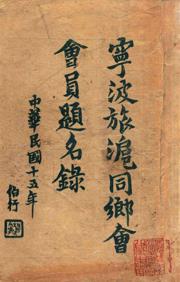 寧波旅滬同鄉會
會員題名錄
中華民國十五年
伯行